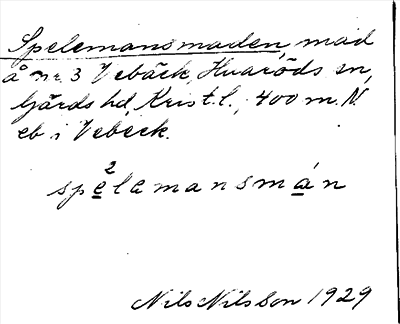 Spelemansmaden, mad
å nr 3 Vebäck, Hvaröds sn,
Gärds hd, Krist.l., 400 m. N.
eb i Vebäck.
2
spelemansmán
Nils Nilsson 1929